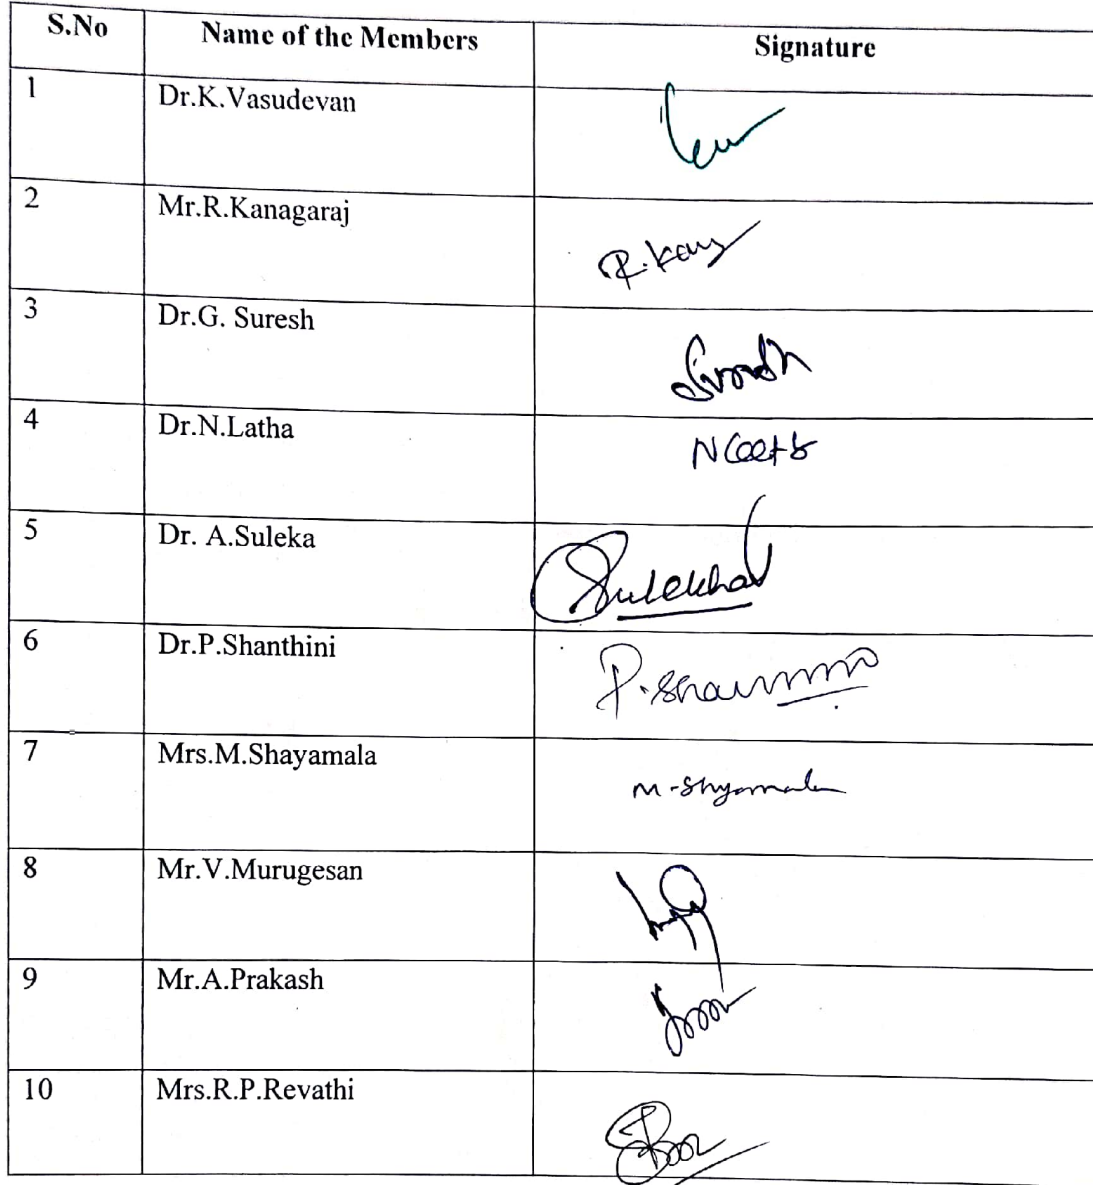 S.No Name of the Members Signature
1 Dr.K.Vasudevan
2 Mr.R.Kanagaraj
3 Dr.G. Suresh
4 Dr.N.Latha
5 Dr. A.Suleka Sulekha
6 Dr.P.Shanthini
7 Mrs.M.Shayamala M-Shyamala
8 Mr.V.Murugesan
9 Mr.A.Prakash
10 Mrs.R.P.Revathi